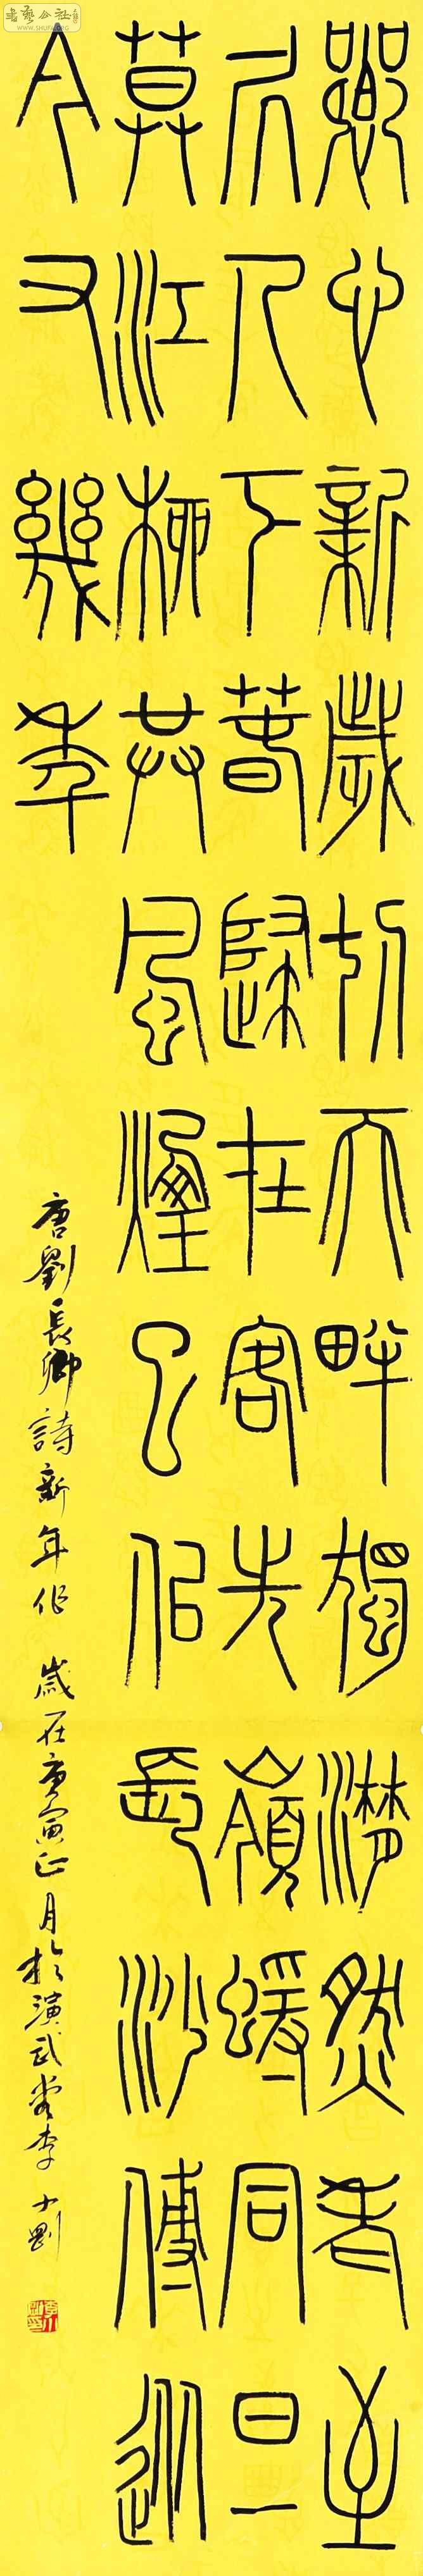 鄉心新歲切天畔獨潸然老至
凥人下萅歸在客先嶺蝯同旦
莫江柳共風煙已佀長沙傅從
今又幾年
唐劉長卿詩新年作 歲在庚寅正月於演武堂李小剛
書藝公社